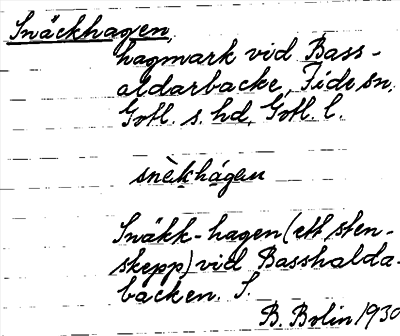 Snäckhagen,
hagmark vid Bass-
aldarbacke, Fide sn,
Gotl. s. hd, Gotl. l.
snèkhágen
Snäkk-hagen (ett sten-
skepp) vid Basshalda-
backen. S.
B. Bolin 1930